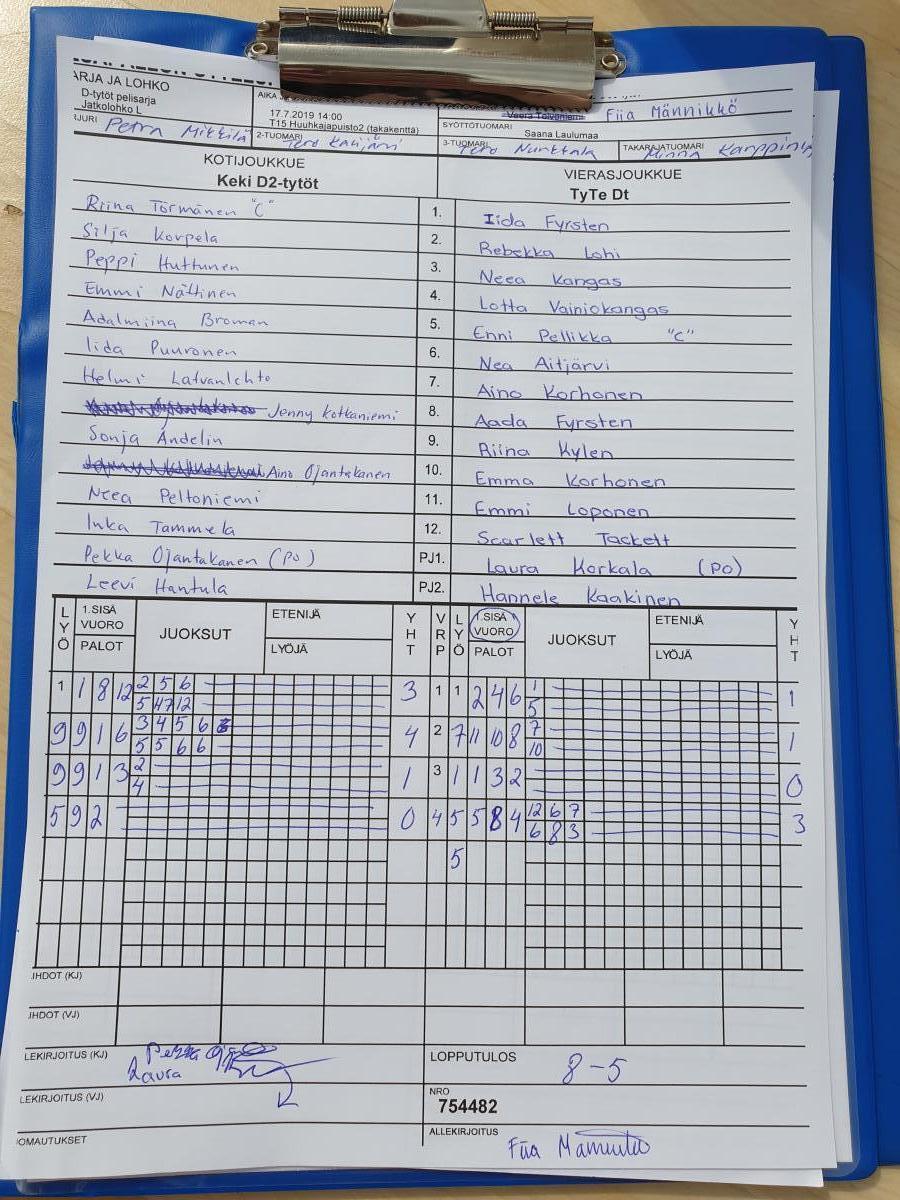 ARJA JA LOHKO
D-tytöt pelisarja
Jatkolohko L
AIKA
17.7.2019 14:00
T15 Huuhkajapuisto2 (takakenttä)
Fiia Männikkö
SYÖTTÖTUOMARI
Saana Laulumaa
Petra Mikkilä
2-TUOMARI
3-TUOMARI
TAKARAJATUOMARI
Minna Karppinen
KOTIJOUKKUE
Keki D2-tytöt
VIERASJOUKKUE
TyTe Dt
Riina Törmänen "C" 1. Iida Fyrsten
Silja Korpela 2. Rebekka Lohi
Peppi Huttunen 3. Neea Kangas
Emmi Nättinen 4. Lotta Vainiokangas
Adalmiina Broman 5. Enni Pellikka "C"
Iida Puuronen 6. Nea Aitjärvi
Helmi Latvanlehto 7. Aino Korhonen
Jenny Kotkaniemi 8. Aada Fyrsten
Sonja Andelin 9. Riina Kylen
Aino Ojantakanen 10. Emma Korhonen
Neea Peltoniemi 11. Emmi Loponen
Inka Tammela 12. Scarlett Tackett
Pekka Ojantakanen (PO) PJ1. Laura Korkala (PO)
Leevi Hantula PJ2. Hannele Kaakinen
LYÖ 1.SISÄ VUORO PALOT JUOKSUT ETENIJÄ LYÖJÄ YHT VRP LYÖ 1.SISÄ VUORO PALOT JUOKSUT ETENIJÄ LYÖJÄ YHT
1 1 8 12 2 5 6 3 1 1 2 4 6 1 1
5 47 12 5
9 9 1 6 3 4 5 6 4 2 7 11 10 8 7 1
5 5 6 6 10
9 9 1 3 2 1 3 1 1 3 2 0
4
5 9 2 0 4 5 5 8 4 12 6 7 3
6 8 3
5
JHDOT (KJ)
JHDOT (VJ)
LEKIRJOITUS (KJ)
Laura
LOPPUTULOS
8-5
LEKIRJOITUS (VJ)
NRO
754482
OMAUTUKSET
ALLEKIRJOITUS
Fiia